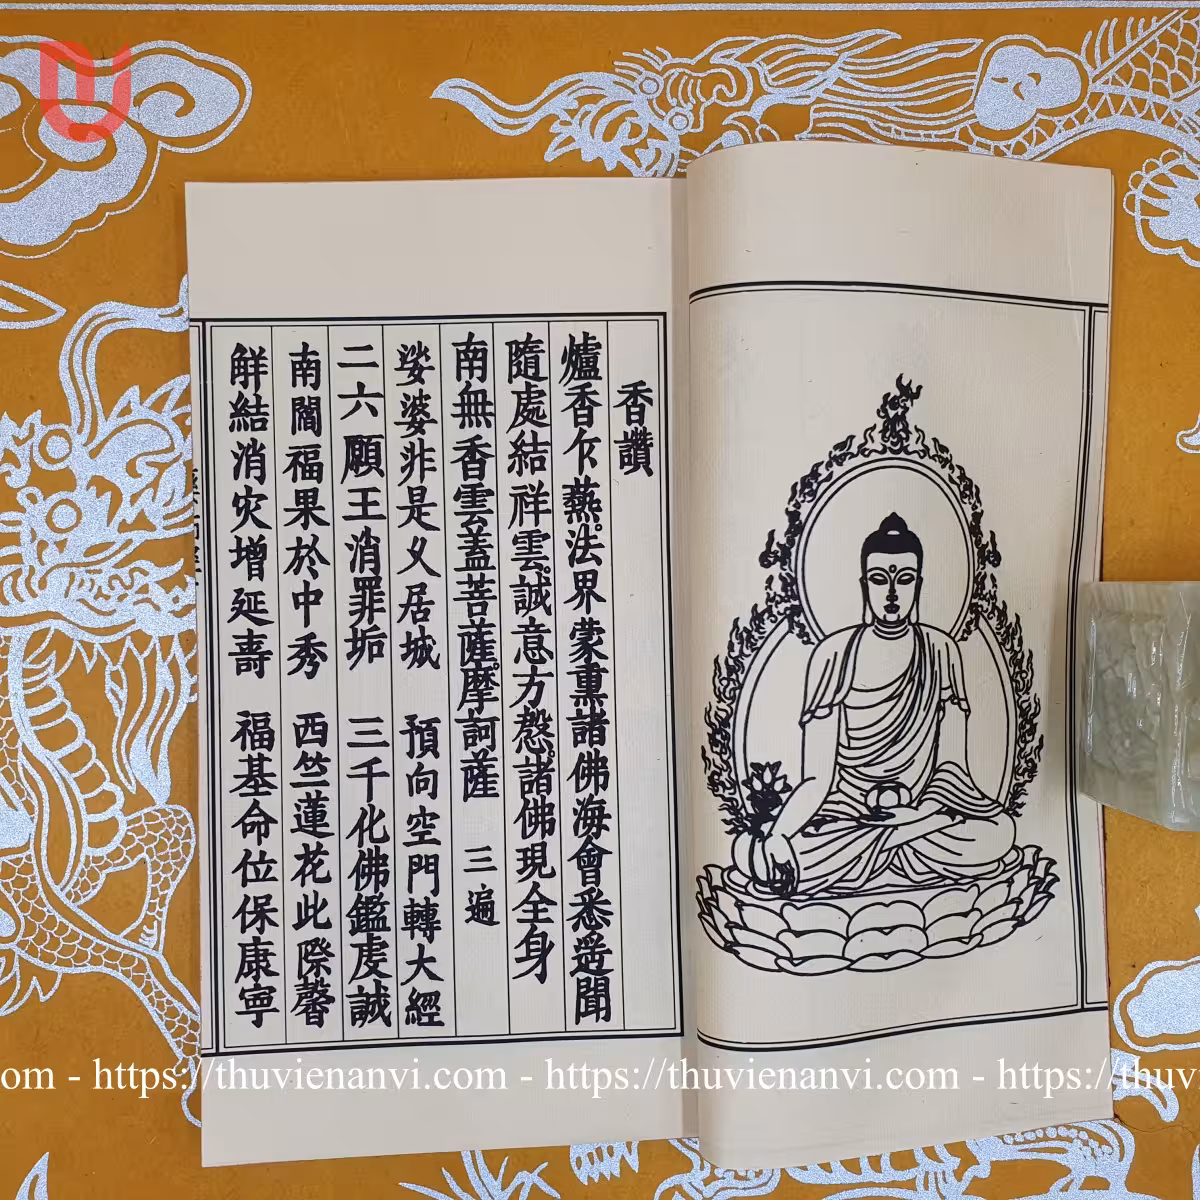 香讚
爐香乍爇法界蒙熏諸佛海會悉遥聞
隨處結祥雲誠意方慇諸佛現全身
南無香雲蓋菩薩摩訶薩 三遍
娑婆非是乂居城 預向空門轉大經
二六願王消罪垢 三千化佛鑑虔誠
南閻福果於中秀 西竺蓮花此際馨
觧結消灾增延壽 福基命位保康寧
om - https://thuvienanvi.com - https://thuvienanvi.com - https://thuv